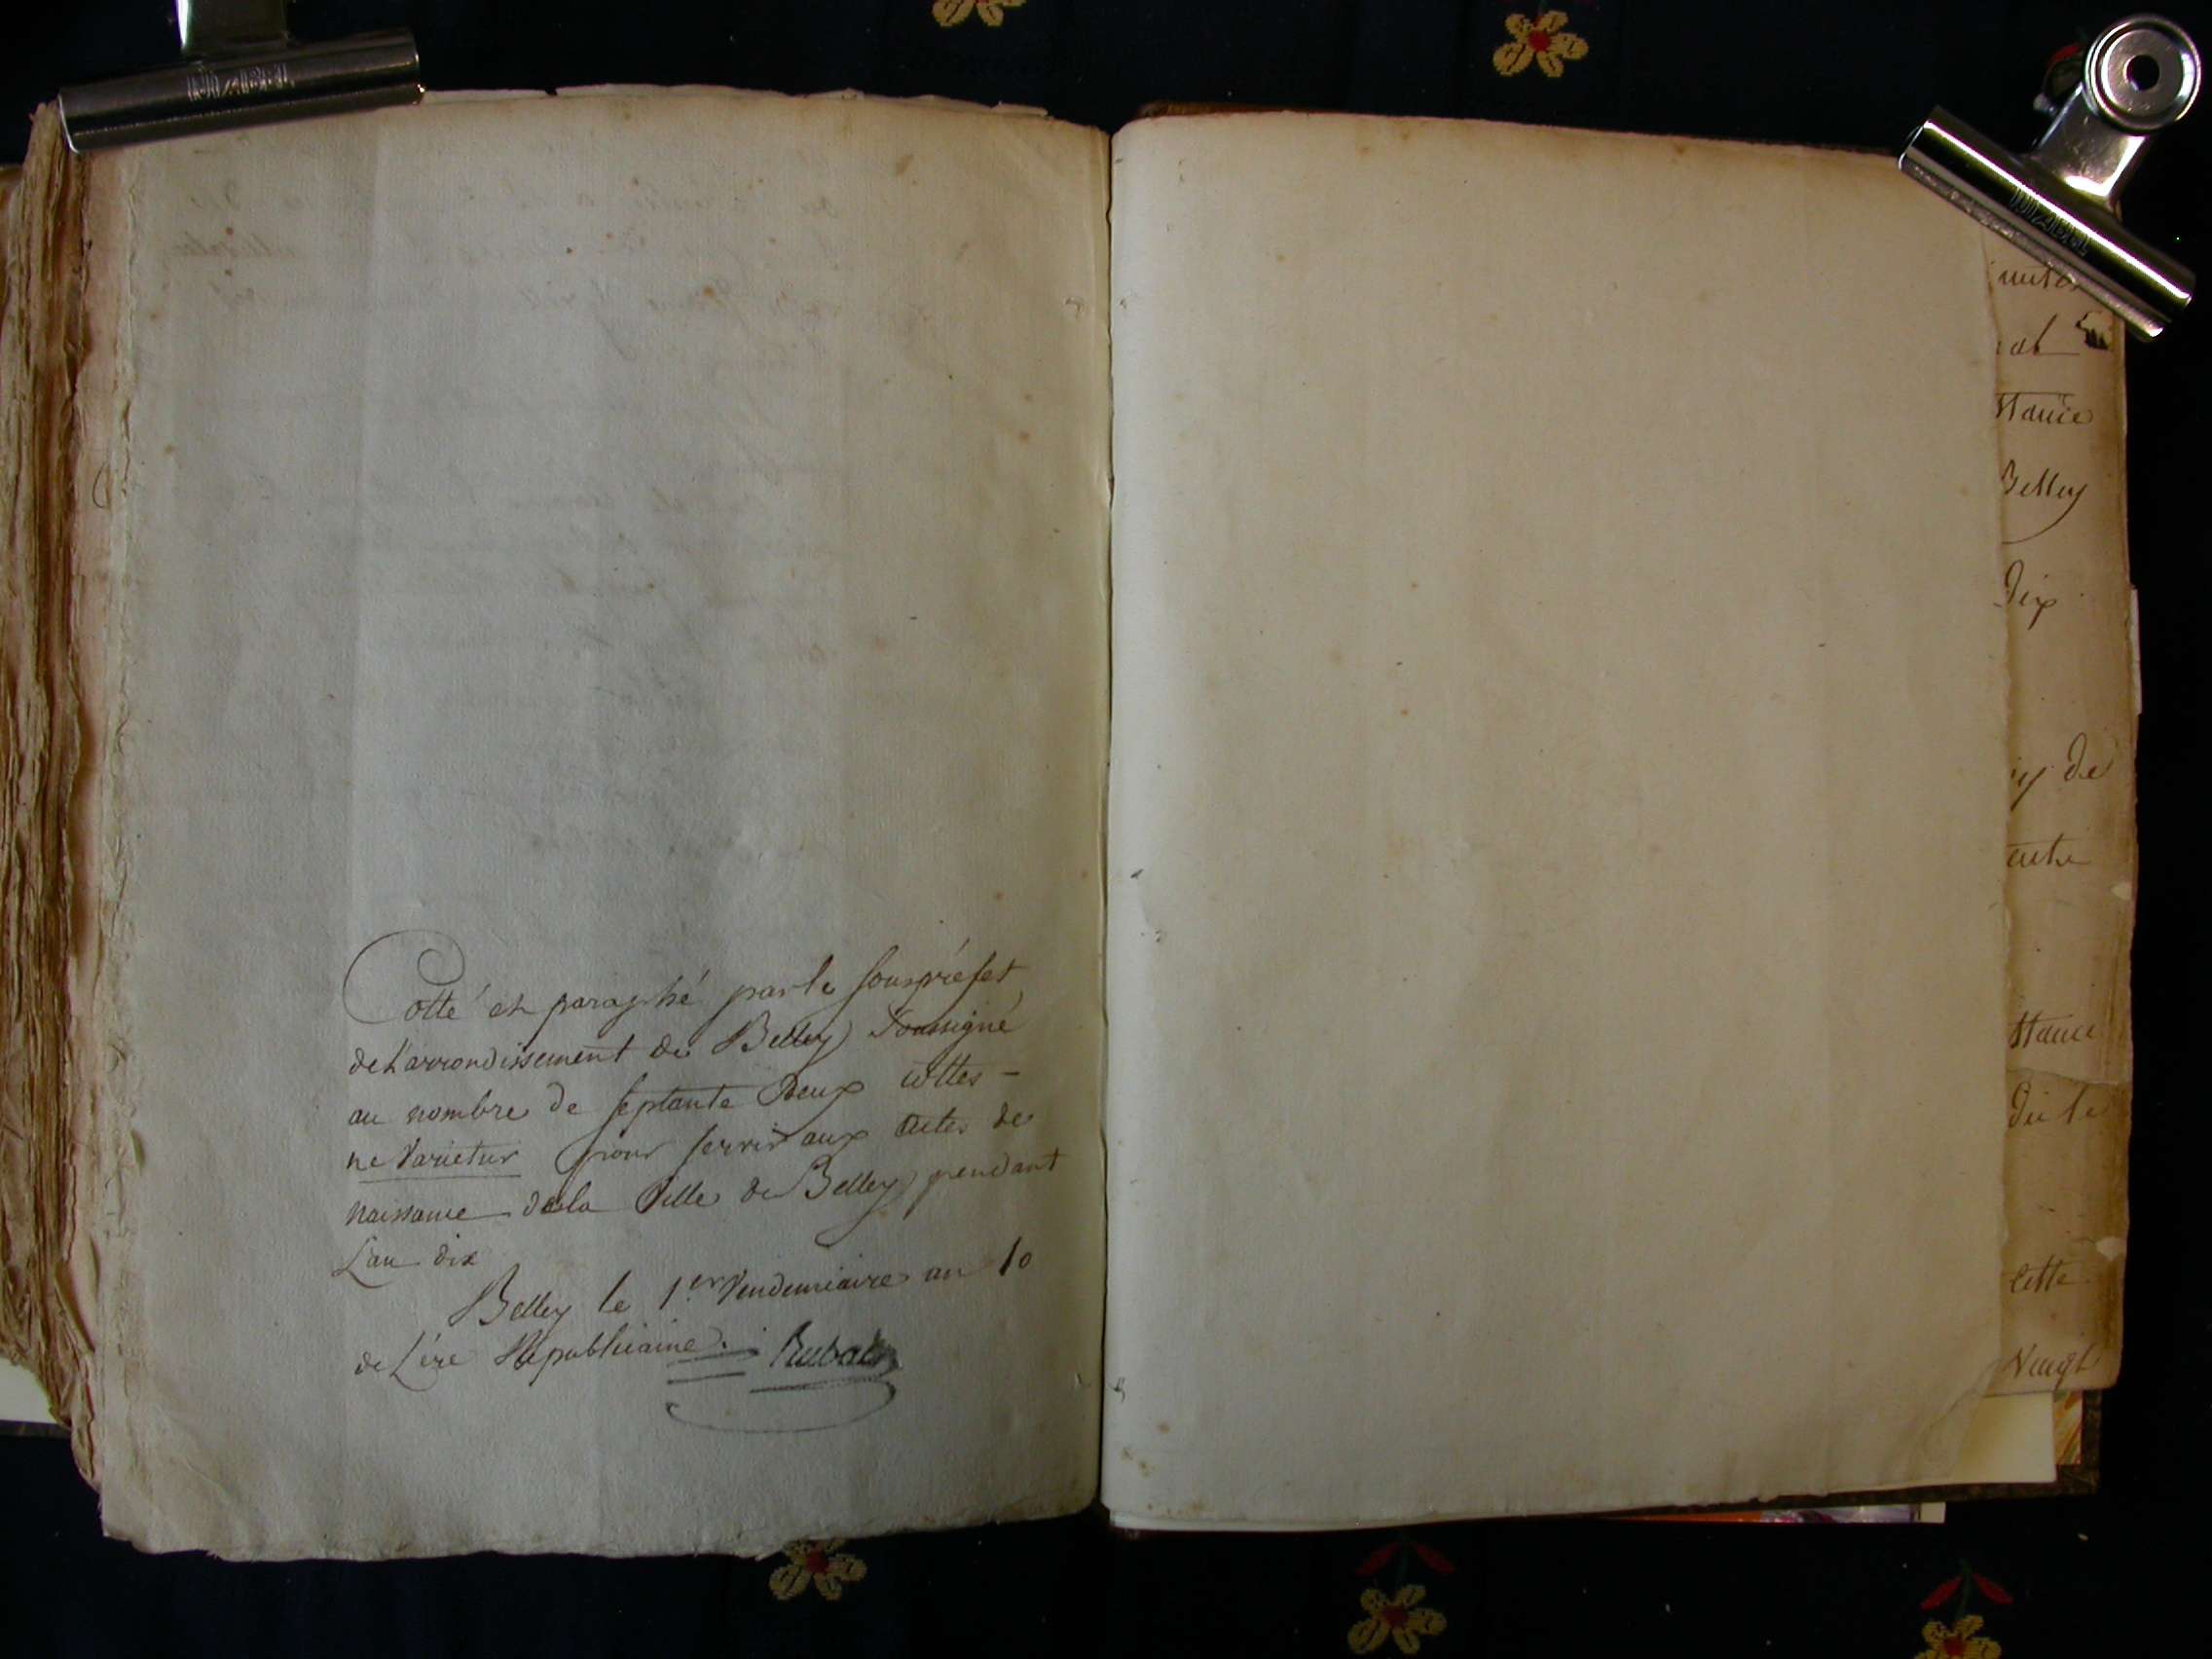 Cotté et paraphé par le souspréfet
de L'arrondissement de Belley Soussigné
au nombre de septante Deux cottes -
ne Varietur pour servir aux actes de
naissance de la Ville de Belley pendant
L'an dix
Belley le 1.er Vendemiaire an 10
de L'ère Républicaine. Rubat
stance
Belley
Dix
y de
stance
Du le
cette
Vingt